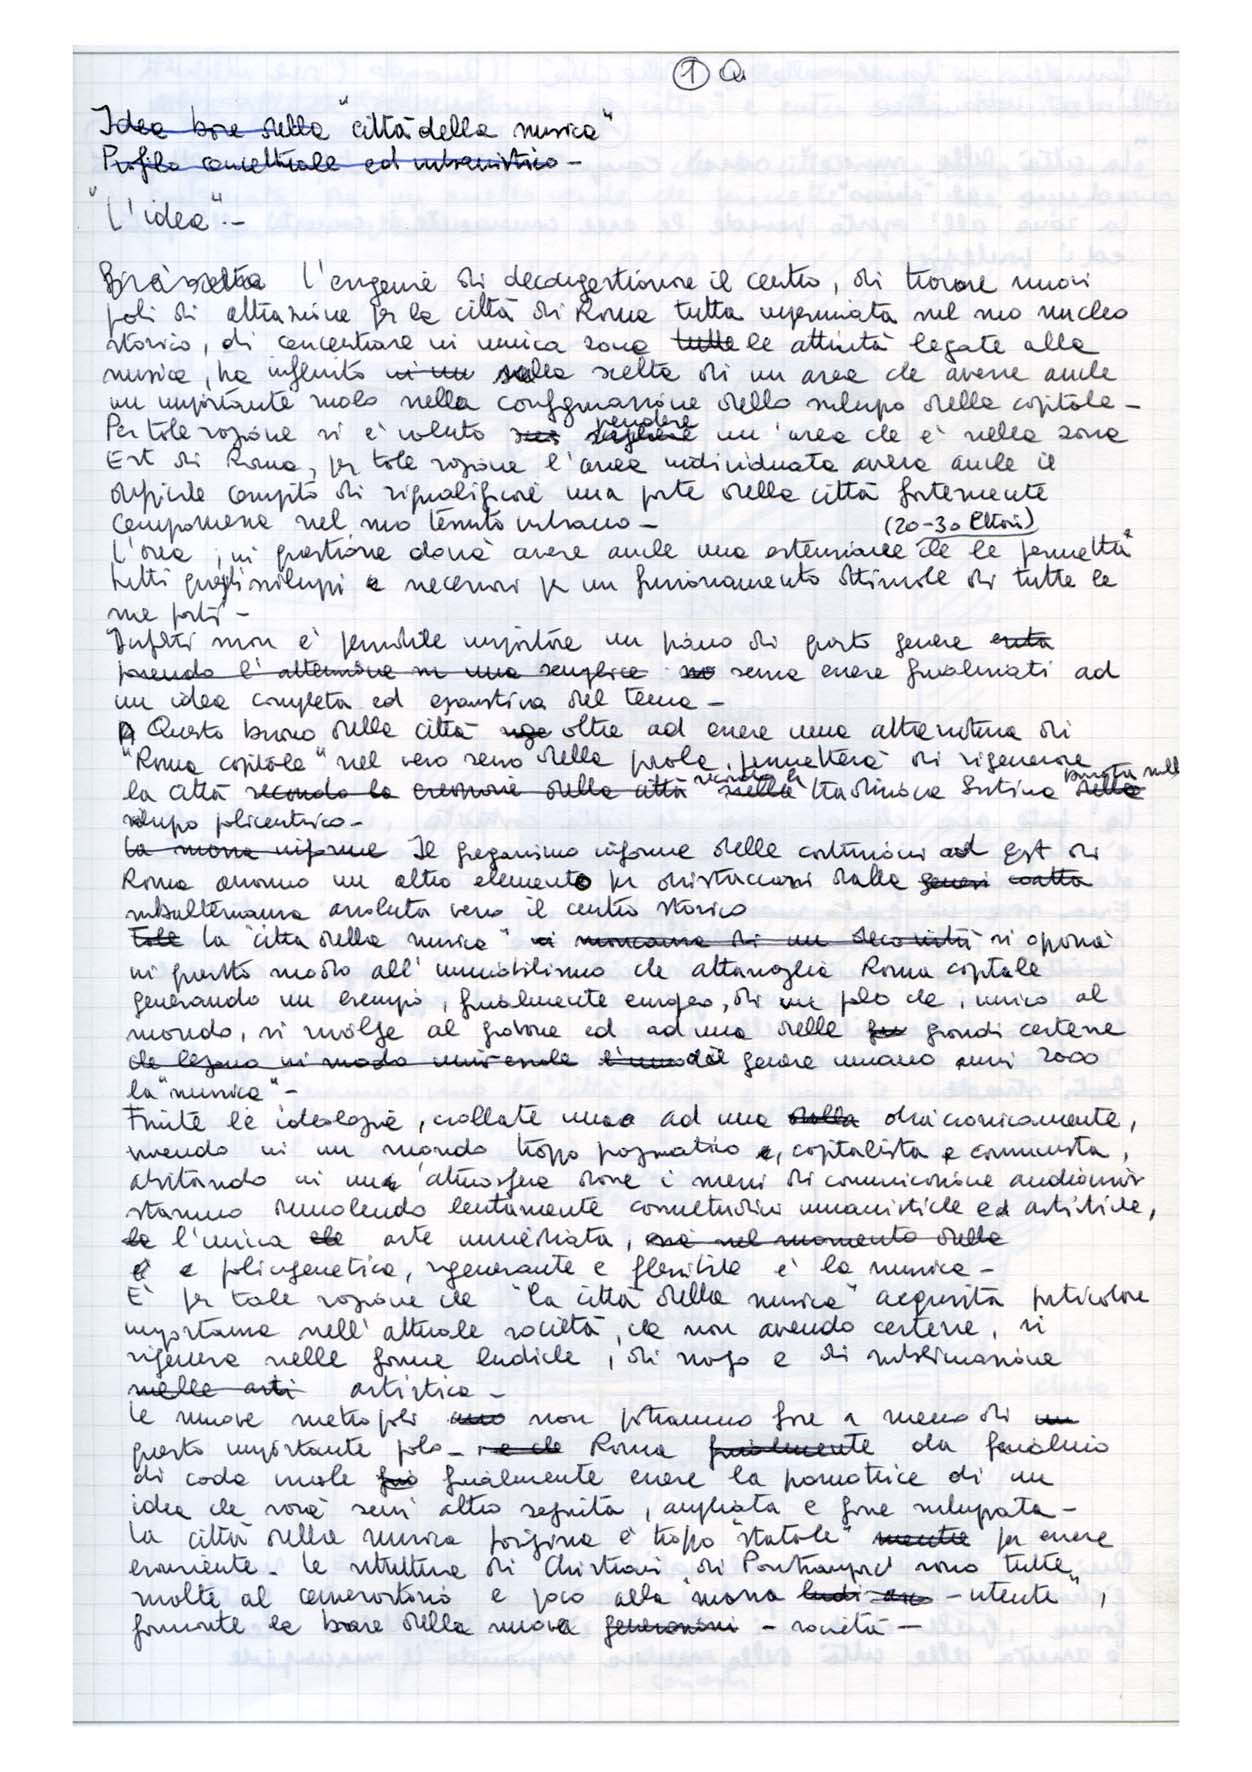 ① a
Idea base della "città della musica"
Profilo concettuale ed urbanistico -
"L'idea" -
L'esigenza di decongestionare il centro, di trovare nuovi
poli di attrazione per la città di Roma tutta imperniata nel suo nucleo
storico, di concentrare in unica zona tutte le attività legate alla
musica, ha influito in un sulla scelta di un area che avesse anche
un importante ruolo nella configurazione dello sviluppo della capitale -
Per tale ragione si è voluto scegliere prendere un'area che è nella zona
Est di Roma, per tale ragione l'area individuata aveva anche il
difficile compito di riqualificare una parte della città fortemente
compromessa nel suo tessuto urbano - (20-30 Ettari)
L'area, in questione dovrà avere anche una estensione che le permetta
tutti quegli sviluppi e necessari per un funzionamento ottimale di tutte le
sue parti -
Infatti non è possibile impostare un piano di questo genere
ponendo l'attenzione su una semplice senza essere finalizzati ad
un idea completa ed esaustiva del tema -
Questo brano della città oltre ad essere una alternativa di
"Roma capitale" nel vero senso della parola, permetterà di rigenerare
la città secondo la creazione della città secondo la nella tradizione basata sullo della
sviluppo policentrico -
La massa informe Il informe delle costruzioni ad Est di
Roma avranno un altro elemento per distaccarsi dalla
subalternanza assoluta verso il centro storico
Tale la "città della musica" in mancanza di un si opporrà
in questo modo all'immobilismo che attanaglia Roma capitale
generando un esempio, finalmente europeo, di un polo che, unico al
mondo, si rivolge al giovane ed ad una delle grandi certezze
che legano in modo universale l'uno del genere umano anni 2000
la "musica" -
Finite le ideologie, crollate una ad una dalla diacronicamente,
vivendo in un mondo troppo pragmatico e, capitalista e consumista,
abitando in una atmosfera dove i mezzi di comunicazione audiovisivi
stanno demolendo lentamente consuetudini umanistiche ed artistiche,
la l'unica che arte immediata, ma nel momento della
e e poligenetica, rigenerante e flessibile è la musica -
E' per tale ragione che "la città della musica" acquista particolare
importanza nell'attuale società, che non avendo certezze, si
rigenera nelle forme ludiche, di svago e di sublimazione
nelle arti artistica -
Le nuove metropoli non potranno fare a meno di un
questo importante polo - e che Roma finalmente da fanalino
di coda vuole finalmente essere la promotrice di un
idea che sarà senz'altro seguita, ampliata e forse sviluppata -
La città della musica parigina è troppo "statale" mentre per essere
esauriente - Le strutture di Christian di Portzamparc sono tutte
rivolte al conservatorio e poco alla "massa - utente",
fornente la base della nuova generazioni - società -